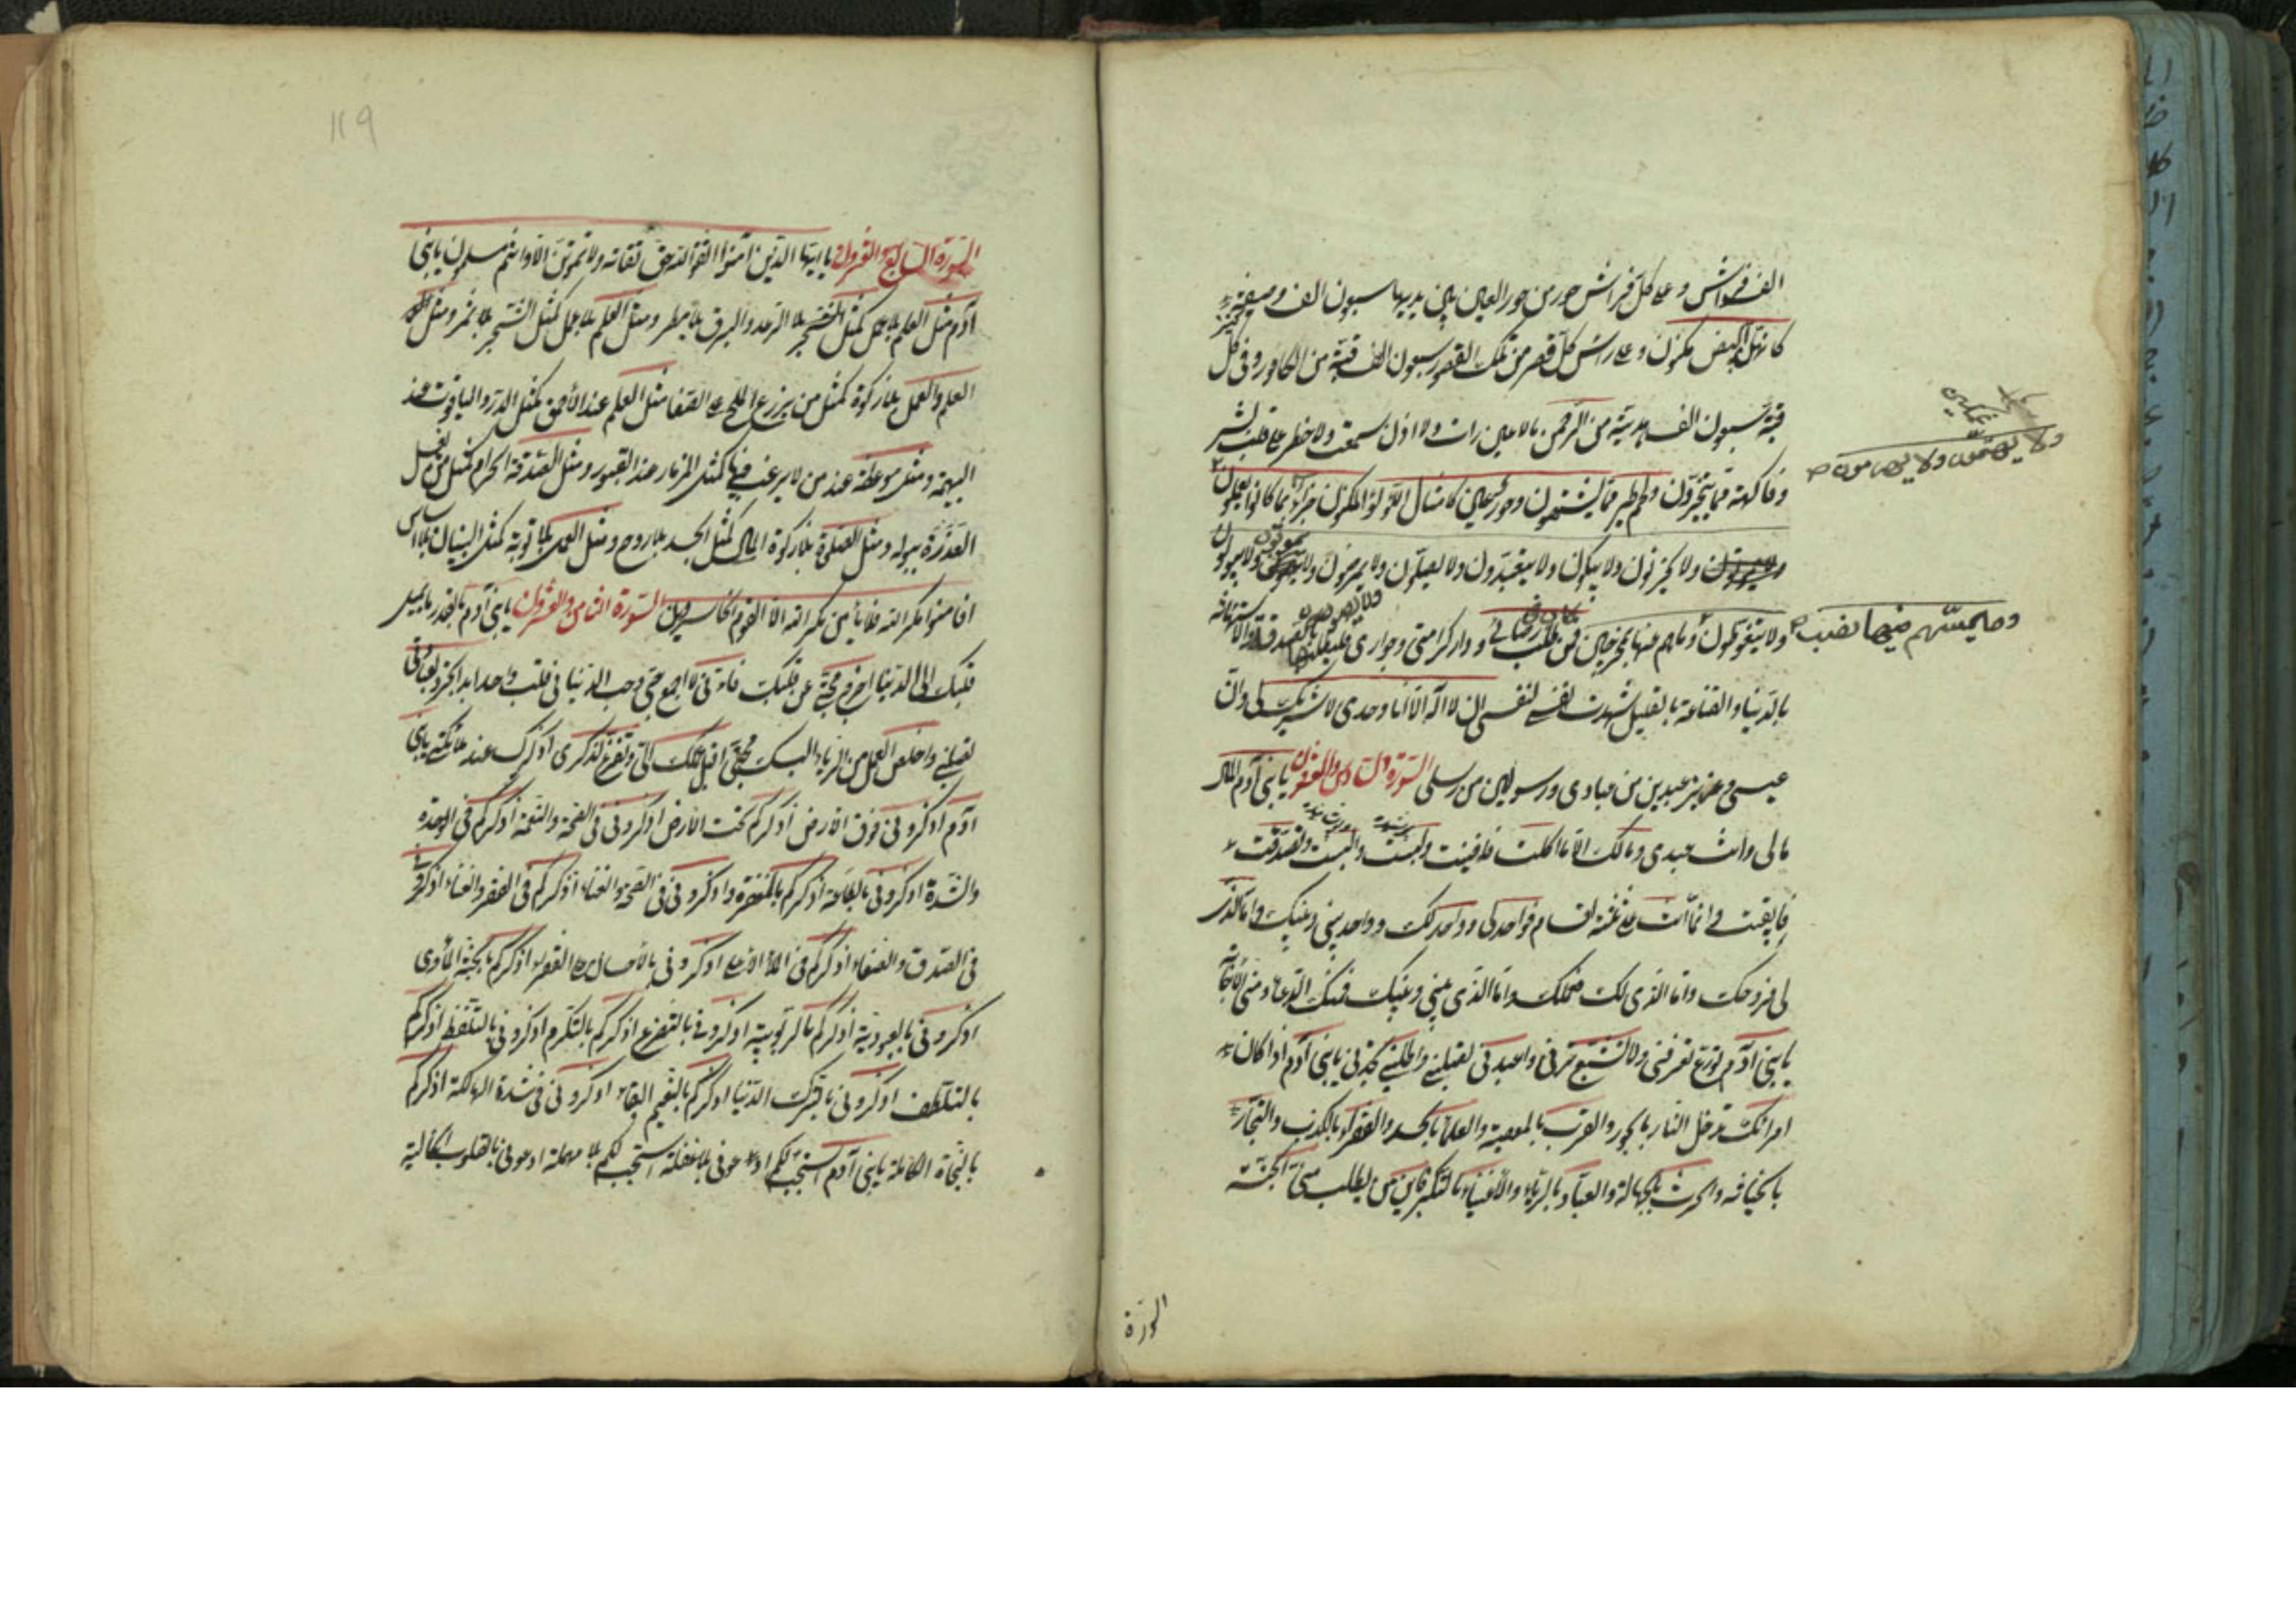 الف فراش و على كل فراش حور من حور العين بين يديها سبعون الف وصيفة
كانهن بيض مكنون و على راس كل قصر من تلك القصور سبعون الف قبة من الكافور و فى كل
قبة سبعون الف هدية من الرحمن ما لا عين رات ولا اذن سمعت ولا خطر على قلب بشر
وفاكهة مما يتخيرون ولحم طير مما يشتهون وحور عين كامثال اللؤلؤ المكنون جزاء بما كانوا يعملون
ولا يحزنون ولا يبكون ولا يتعبدون ولا يصلون ولا يمرضون ولا يبولون
ولا يهتمون ولا
ولا يتغوطون وما هم منها بمخرجين فمن طلب رضائى و دار كرامتى وجوارى فليطلبها بالصدقة والاستهانة
وما يمسهم فيها نصب
بالدنيا والقناعة بالقليل شهدت نفسى لنفسى ان لا اله الا انا وحدى لا شريك لى وان
عيسى وعزير عبدين من عبادى ورسولين من رسلى السورة السادس والعشرون يا بنى آدم المال
مالى وانت عبدى ومالك الا ما اكلت فافنيت ولبست وابليت وتصدقت
فابقيت وانما انت على ثلثة اقسام فواحد لى وواحد لك وواحد بينى وبينك واما الذى
لى فروحك واما الذى لك فعملك واما الذى بينى وبينك فمنك الدعاء ومنى الاجابة
يا بنى آدم تورع تعرفنى ولا تشبع ترانى واعبدنى تصلنى واطلبنى تجدنى يا بنى آدم اذا كان
امرائك تدخل النار بالجور والعرب بالمعصية والعلماء بالحسد والفقراء بالكذب والتجار
بالخيانة والحرث بالجهالة والعباد بالرياء والاغنياء بالتكبر فاين من يطلب منى الجنة
السورة
119
السورة السابع والعشرون يا ايها الذين آمنوا اتقوا الله حق تقاته ولا تموتن الا وانتم مسلمون يا بنى
آدم مثل العلم بلا عمل كمثل الرعد والبرق بلا مطر ومثل العلم بلا عمل كمثل الشجر بلا ثمر ومثل
العلم والعمل بلا زكوة كمثل من يزرع الملح على الصفا مثل العلم عند الأحمق كمثل الدر والياقوت عند
البهيمة ومثل موعظة عند من لا يرغب فيها كمثل المزمار عند القبور ومثل الصدقة الحرام كمثل من يغسل
العذرة ببوله ومثل الصلوة بلا زكوة المال كمثل الجسد بلا روح ومثل العمل بلا توبة كمثل البنيان بلا اساس
افامنوا مكر الله فلا يأمن مكر الله الا القوم الخاسرون السورة الثامن والعشرون يا بنى آدم بقدر ما يميل
قلبك الى الدنيا اخرج محبتى عن قلبك فانى لا اجمع حبى وحب الدنيا فى قلب واحد ابدا
تصلنى واخلص العمل من الرياء البسك محبتى اقبل الى وتفرغ لذكرى اذكرك عند ملائكتى يا بنى
آدم اذكرونى فوق الارض اذكركم تحت الارض اذكرونى فى الصحة والنعمة اذكركم فى الوحدة
والشدة اذكرونى بالطاعة اذكركم بالمغفرة واذكرونى فى الصحة والغناء اذكركم فى الفقر والعناء اذكرونى
فى الصدق والصفاء اذكركم فى الملأ الاعلى اذكرونى بالاحسان على الفقراء اذكركم بالجنة المأوى
اذكرونى بالعبودية اذكركم بالربوبية اذكرونى بالتضرع اذكركم بالتكرم اذكرونى بالتلفظ اذكركم
بالتلطف اذكرونى بترك الدنيا اذكركم بالنعيم البقاء اذكرونى فى شدة الهالكة اذكركم
بالنجاة الكاملة يا بنى آدم استجب لكم ادعونى بلا غفلة استجب لكم بلا مهملة ادعونى بالقلوب الخالية